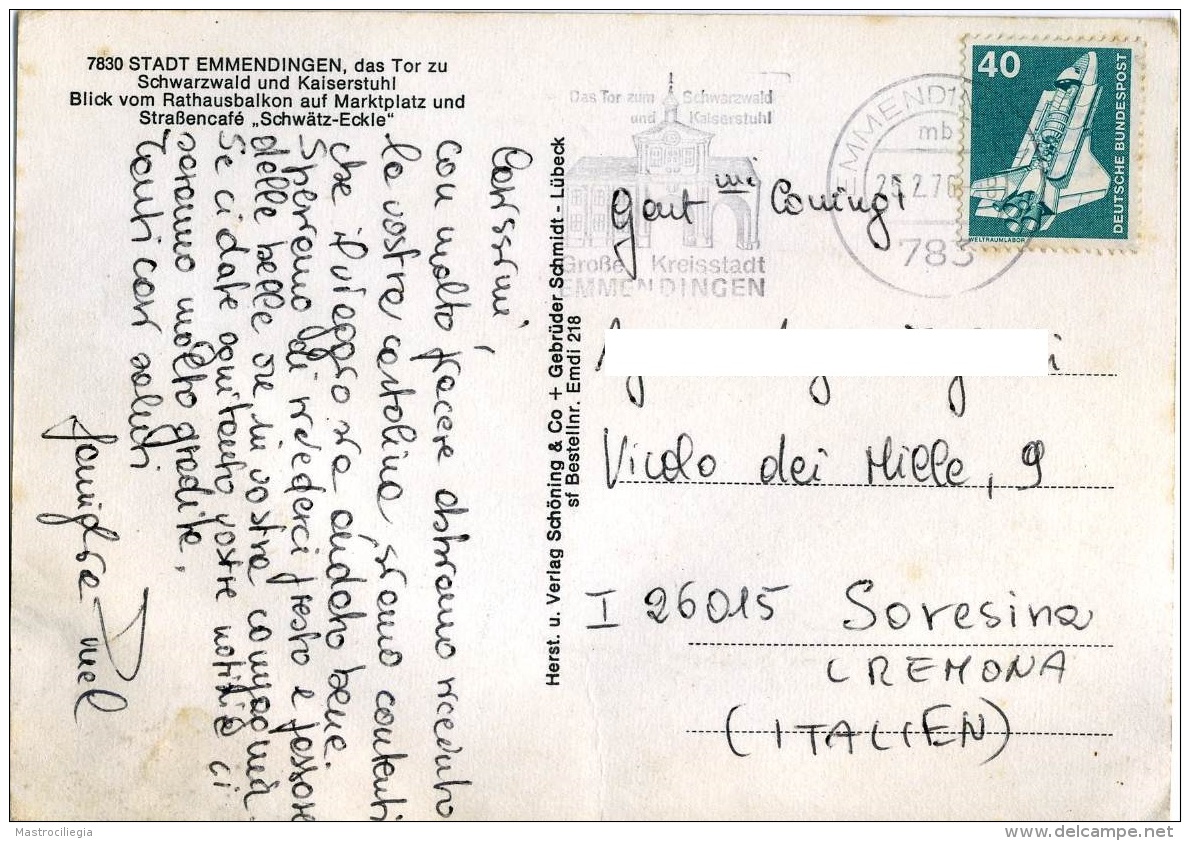 7830 STADT EMMENDINGEN, das Tor zu
Schwarzwald und Kaiserstuhl
Blick vom Rathausbalkon auf Marktplatz und
Straßencafé „Schwätz-Eckle"
Carissimi,
con molto piacere abbiamo ricevuto
la vostra cartolina, siamo contenti
che il viaggio sia andato bene.
Speriamo di rivederci presto e passare
delle belle ore in vostra compagnia.
Se ci date ogni tanto vostre notizie ci
saranno molto gradite.
Tanti cari saluti
famiglia
Herst. u. Verlag Schöning & Co + Gebrüder Schmidt - Lübeck
sf Bestellnr. Emdi 218
Das Tor zum Schwarzwald
und Kaiserstuhl
Große Kreisstadt
EMMENDINGEN
mb
25.2.76
783
40
DEUTSCHE BUNDESPOST
WELTRAUMLABOR
Gent mi
Vicolo dei Mille, 9
I 26015 Soresina
CREMONA
(ITALIEN)
Mastrociliegia
delcampe.net